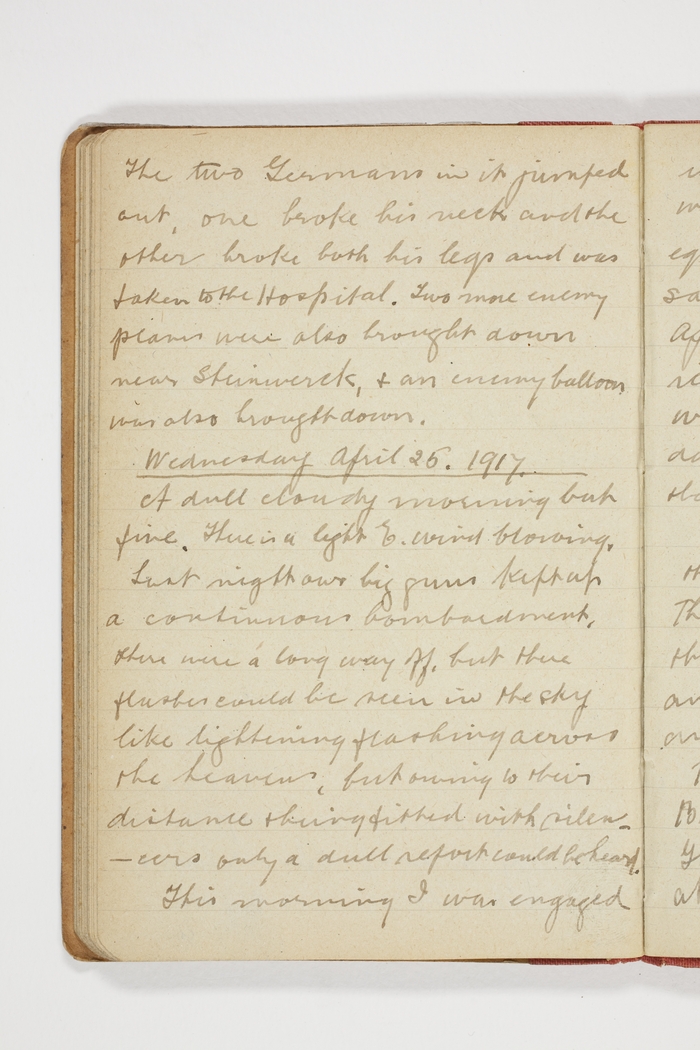 The two Germans in it jumped
out, one broke his neck and the
other broke both his legs and was
taken to the Hospital. Two more enemy
planes were also brought down
near Steinwerck, & an enemy balloon
was also brought down.
Wednesday April 25. 1917.
A dull cloudy morning but
fine. There is a light E. wind blowing.
Last night our big guns kept up
a continuous bombardment,
there were a long way off, but there
flashes could be seen in the sky
like lightening flashing across
the heavens, but owing to their
distance & being fitted with silen-
-cers only a dull report could be heard.
This morning I was engaged